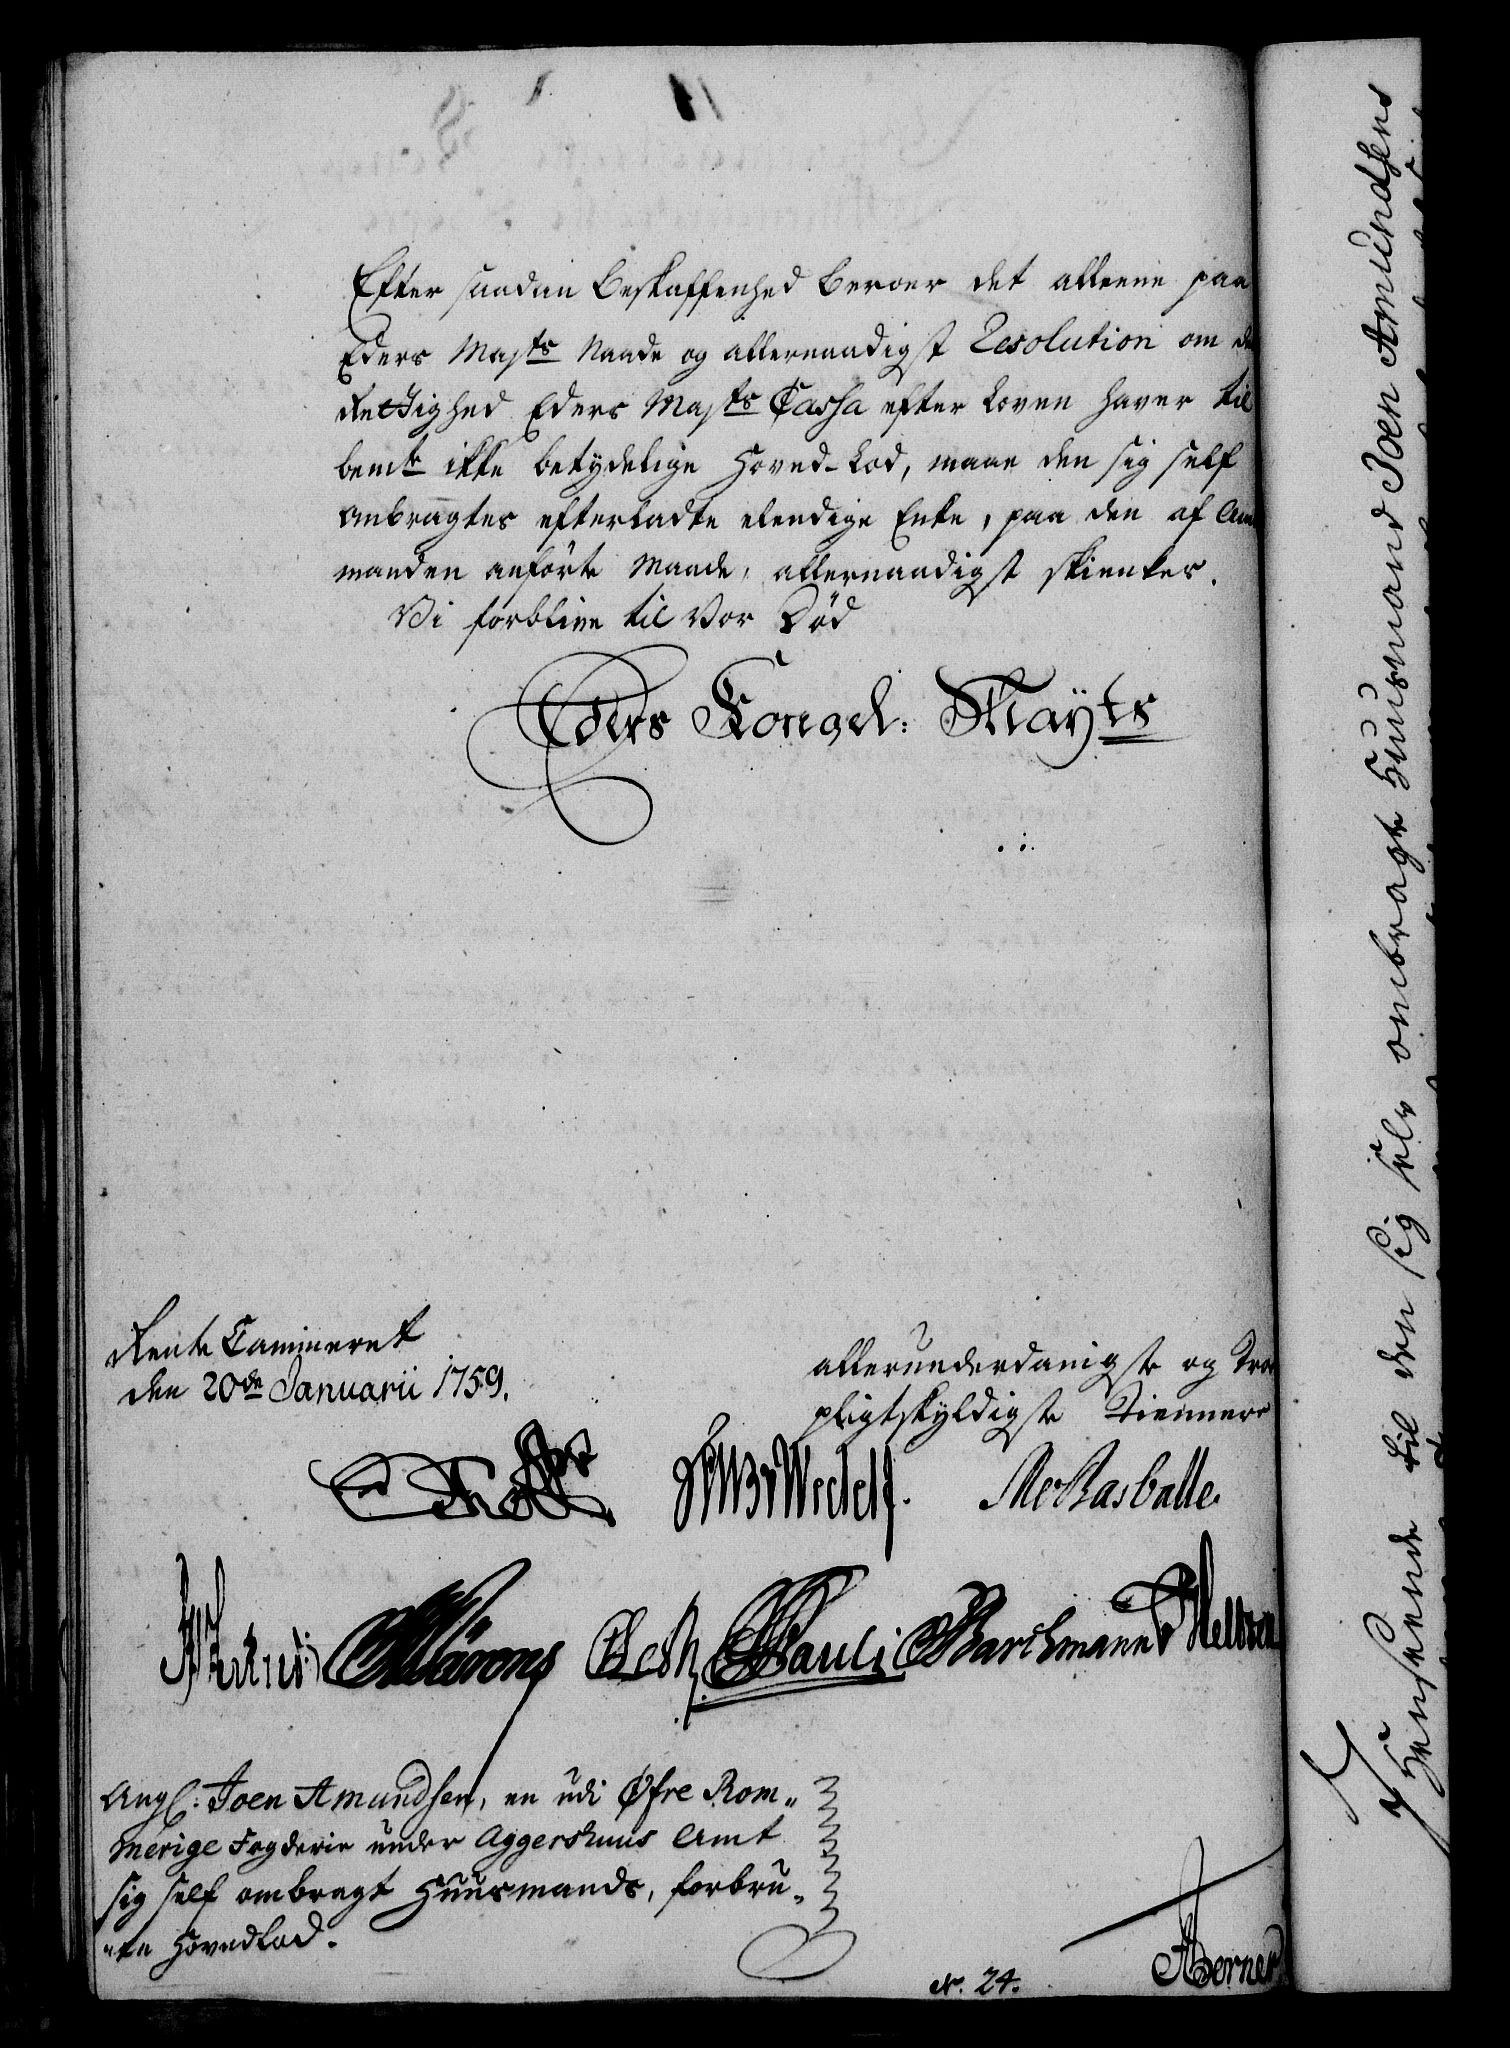 Efter saadan Beskaffenhed beroer det alleene paa
Eders Mayts Naade og allernaadigst Resolution om d
Rettighed Eders Mayts Cassa efter Loven haver til
bemte ikke betydelige Hoved-Lod, maae den sig self
ombragtes efterladte elendige Enke, paa den af Amt
manden anførte Maade, allernaadigst skienkes.
Vi forblive til Vor Død
Eders Kongel: Mayts
Rente Cammeret
den 20de Januarii 1759.
allerunderdanigste og Troe
pligtskyldigste Tienere
Wedell. Rasballe
Pauli Barchmann
Ang: Joen Amundsen, en udi Øfre Rom-
merige Fogderie under Aggershuus Amt
sig self ombragt Huusmands, forbru-
-te Hovedlod.
No. 24.
Henseende til den sig selv ombragt Huusmand Joen Amundsens